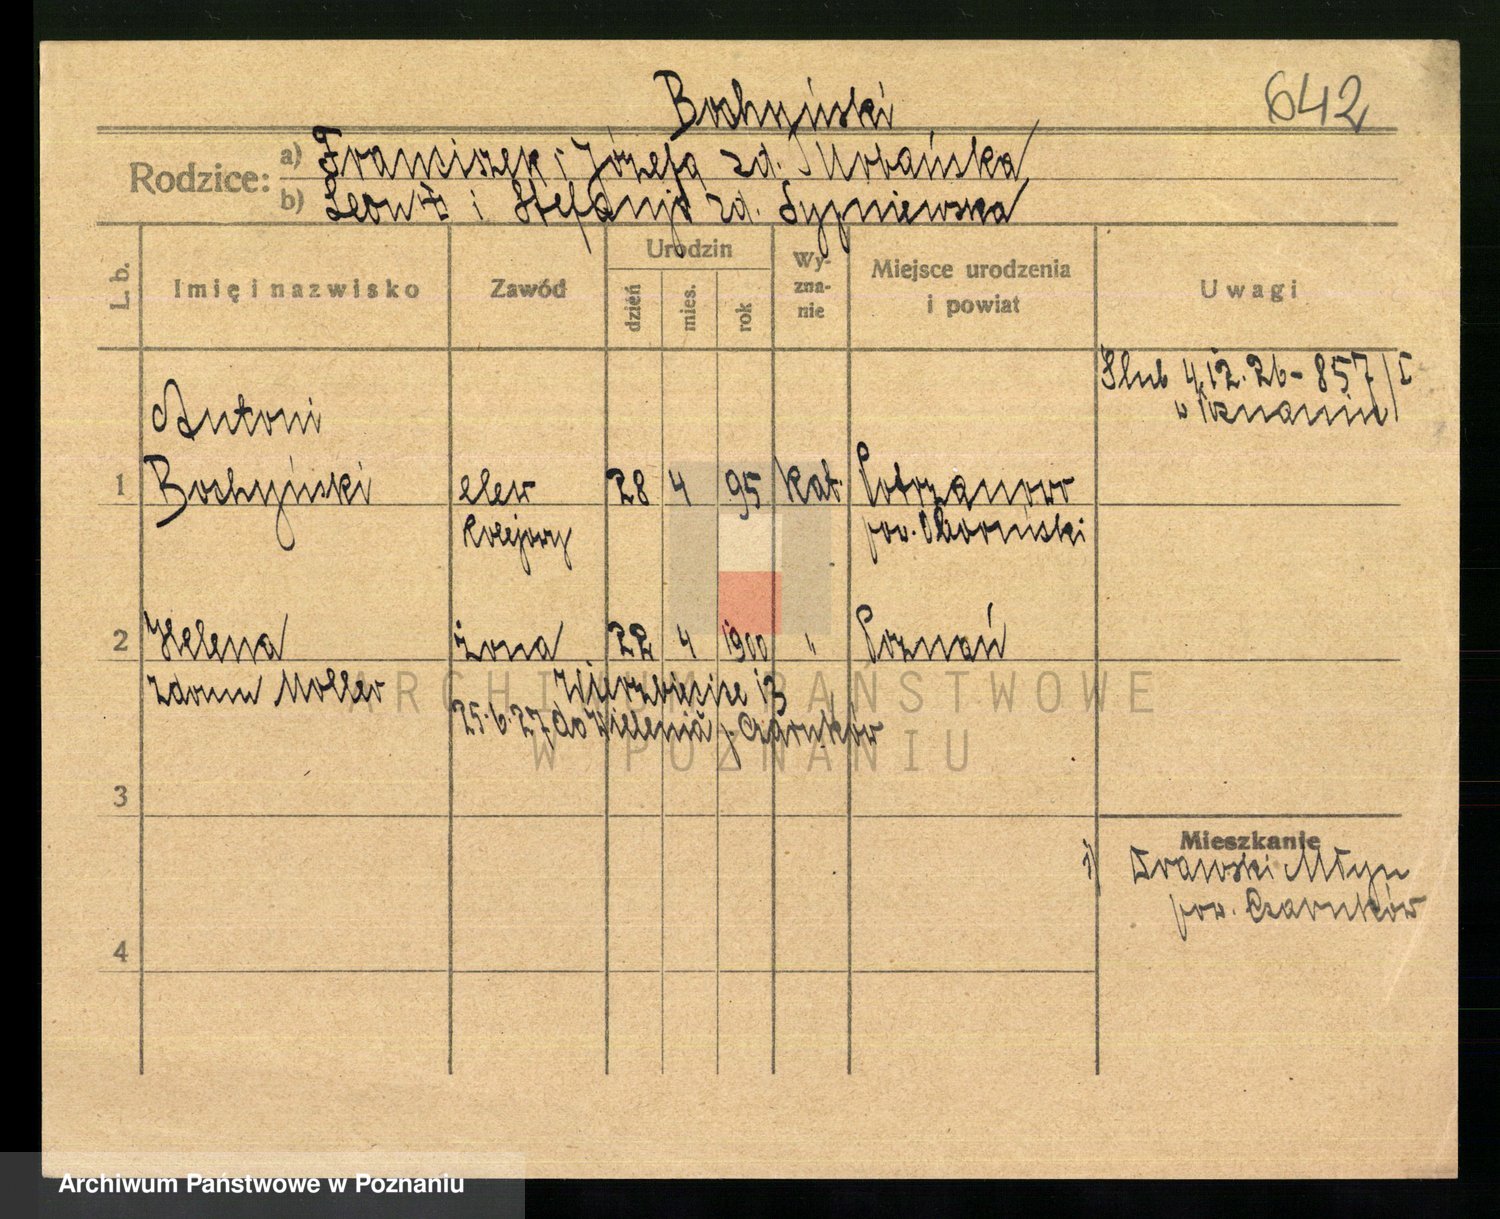 642
Bochyński
Rodzice:
a) Franciszek i Józefa zd. Urbańska
b) Leon i Stefanja zd. Sypniewska
L. b.
Imię i nazwisko
Zawód
Urodzin
dzień
mies.
rok
Wy-
zna-
nie
Miejsce urodzenia
i powiat
Uwagi
Ślub 4.12.26 - 857/I
w Poznaniu
Antoni
1 Bochyński elew 28 4 95 kat. Potrzanowo
kolejowy pow. Obornicki
2 Helena żona 22 4 1900 " Poznań
zdomu Moller Wierzbięcice 13
25.6.27 do Wielenia p. Czarnków
3
4
Mieszkanie
1) Drawski Młyn
pow. Czarnków
ARCHIWUM PAŃSTWOWE
W POZNANIU
Archiwum Państwowe w Poznaniu